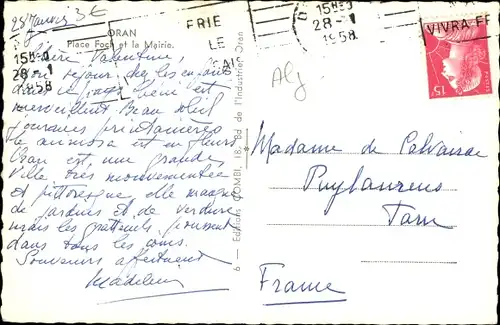 25 Janvier 3€
ORAN
Place Foch et la Mairie.
15H30
28-1
1958
FRIE
LE
15H30
28-1
1958
VIVRA FR
15
POSTES
Alg
Chère Valentine,
Mon séjour chez les enfants
dans ce pays béni est
merveilleux Beau soleil
journées printanières
le mimosa est en fleurs
Oran est une grande
Ville très mouvementée
et pittoresque elle manque
de jardins et de verdure
mais les gratteciels poussent
dans tous les coins.
Souvenirs affectueux
Madeleine
6 - Editions COMBI, 18, Bd de l'Industrie, Oran
Madame de
Puylaurens
Tarn
France